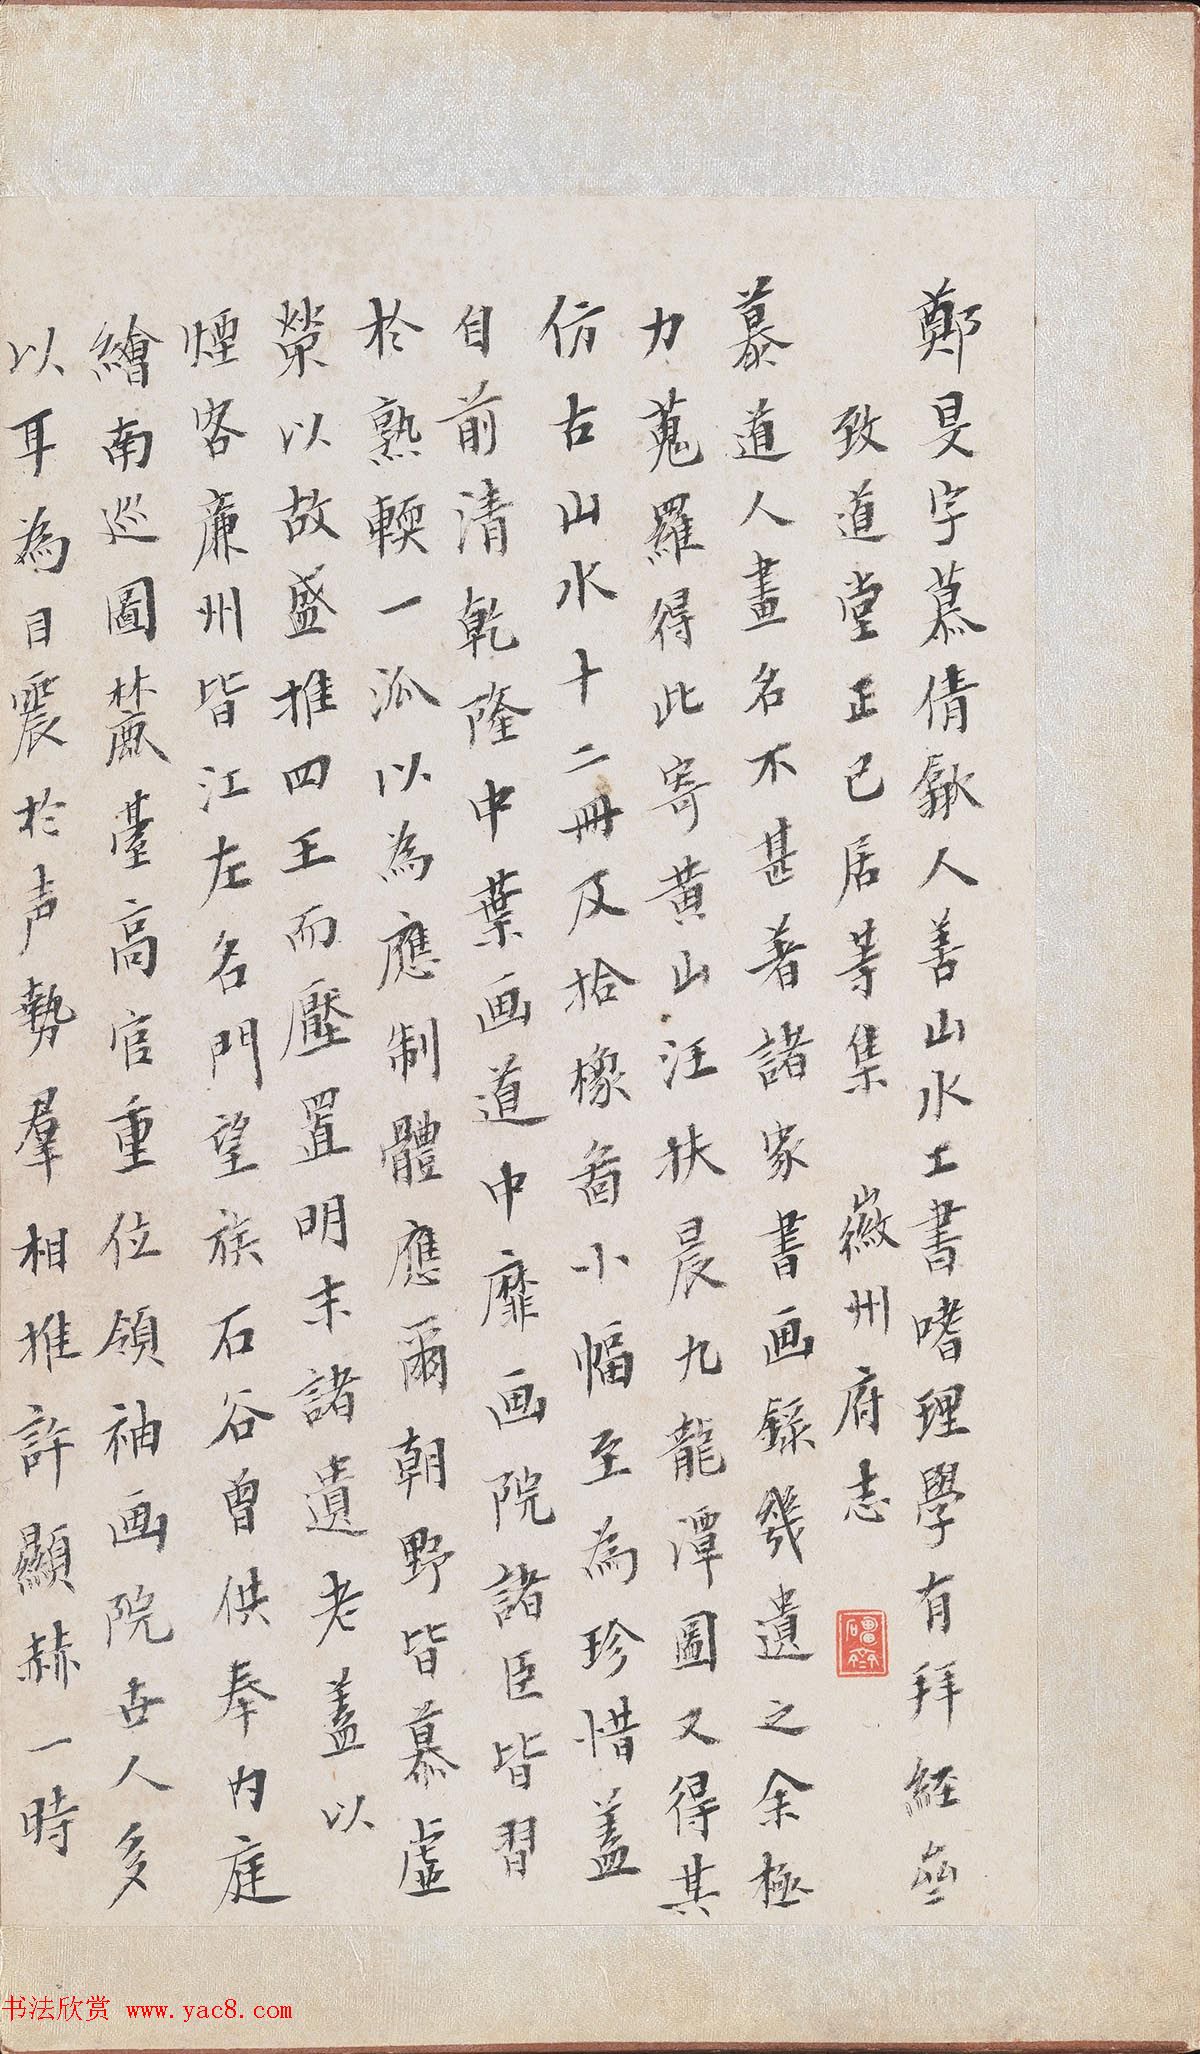 鄭旻字慕倩歙人善山水工書嗜理學有拜經齋
致道堂正己居等集　徽州府志
慕道人畫名不甚著諸家書画錄幾遺之余極
力蒐羅得此寄黄山汪扶晨九龍潭圖又得其
仿古山水十二冊及拾橡啚小幅至為珍惜蓋
自前清乾隆中葉画道中靡画院諸臣皆習
於熟輭一派以為應制體應爾朝野皆慕虛
榮以故盛推四王而壓置明末諸遺老蓋以
煙客廉州皆江左名門望族石谷曾供奉内庭
繪南巡圖麓臺高官重位領袖画院世人多
以耳為目震於声勢羣相推許顯赫一時
书法欣赏 www.yac8.com